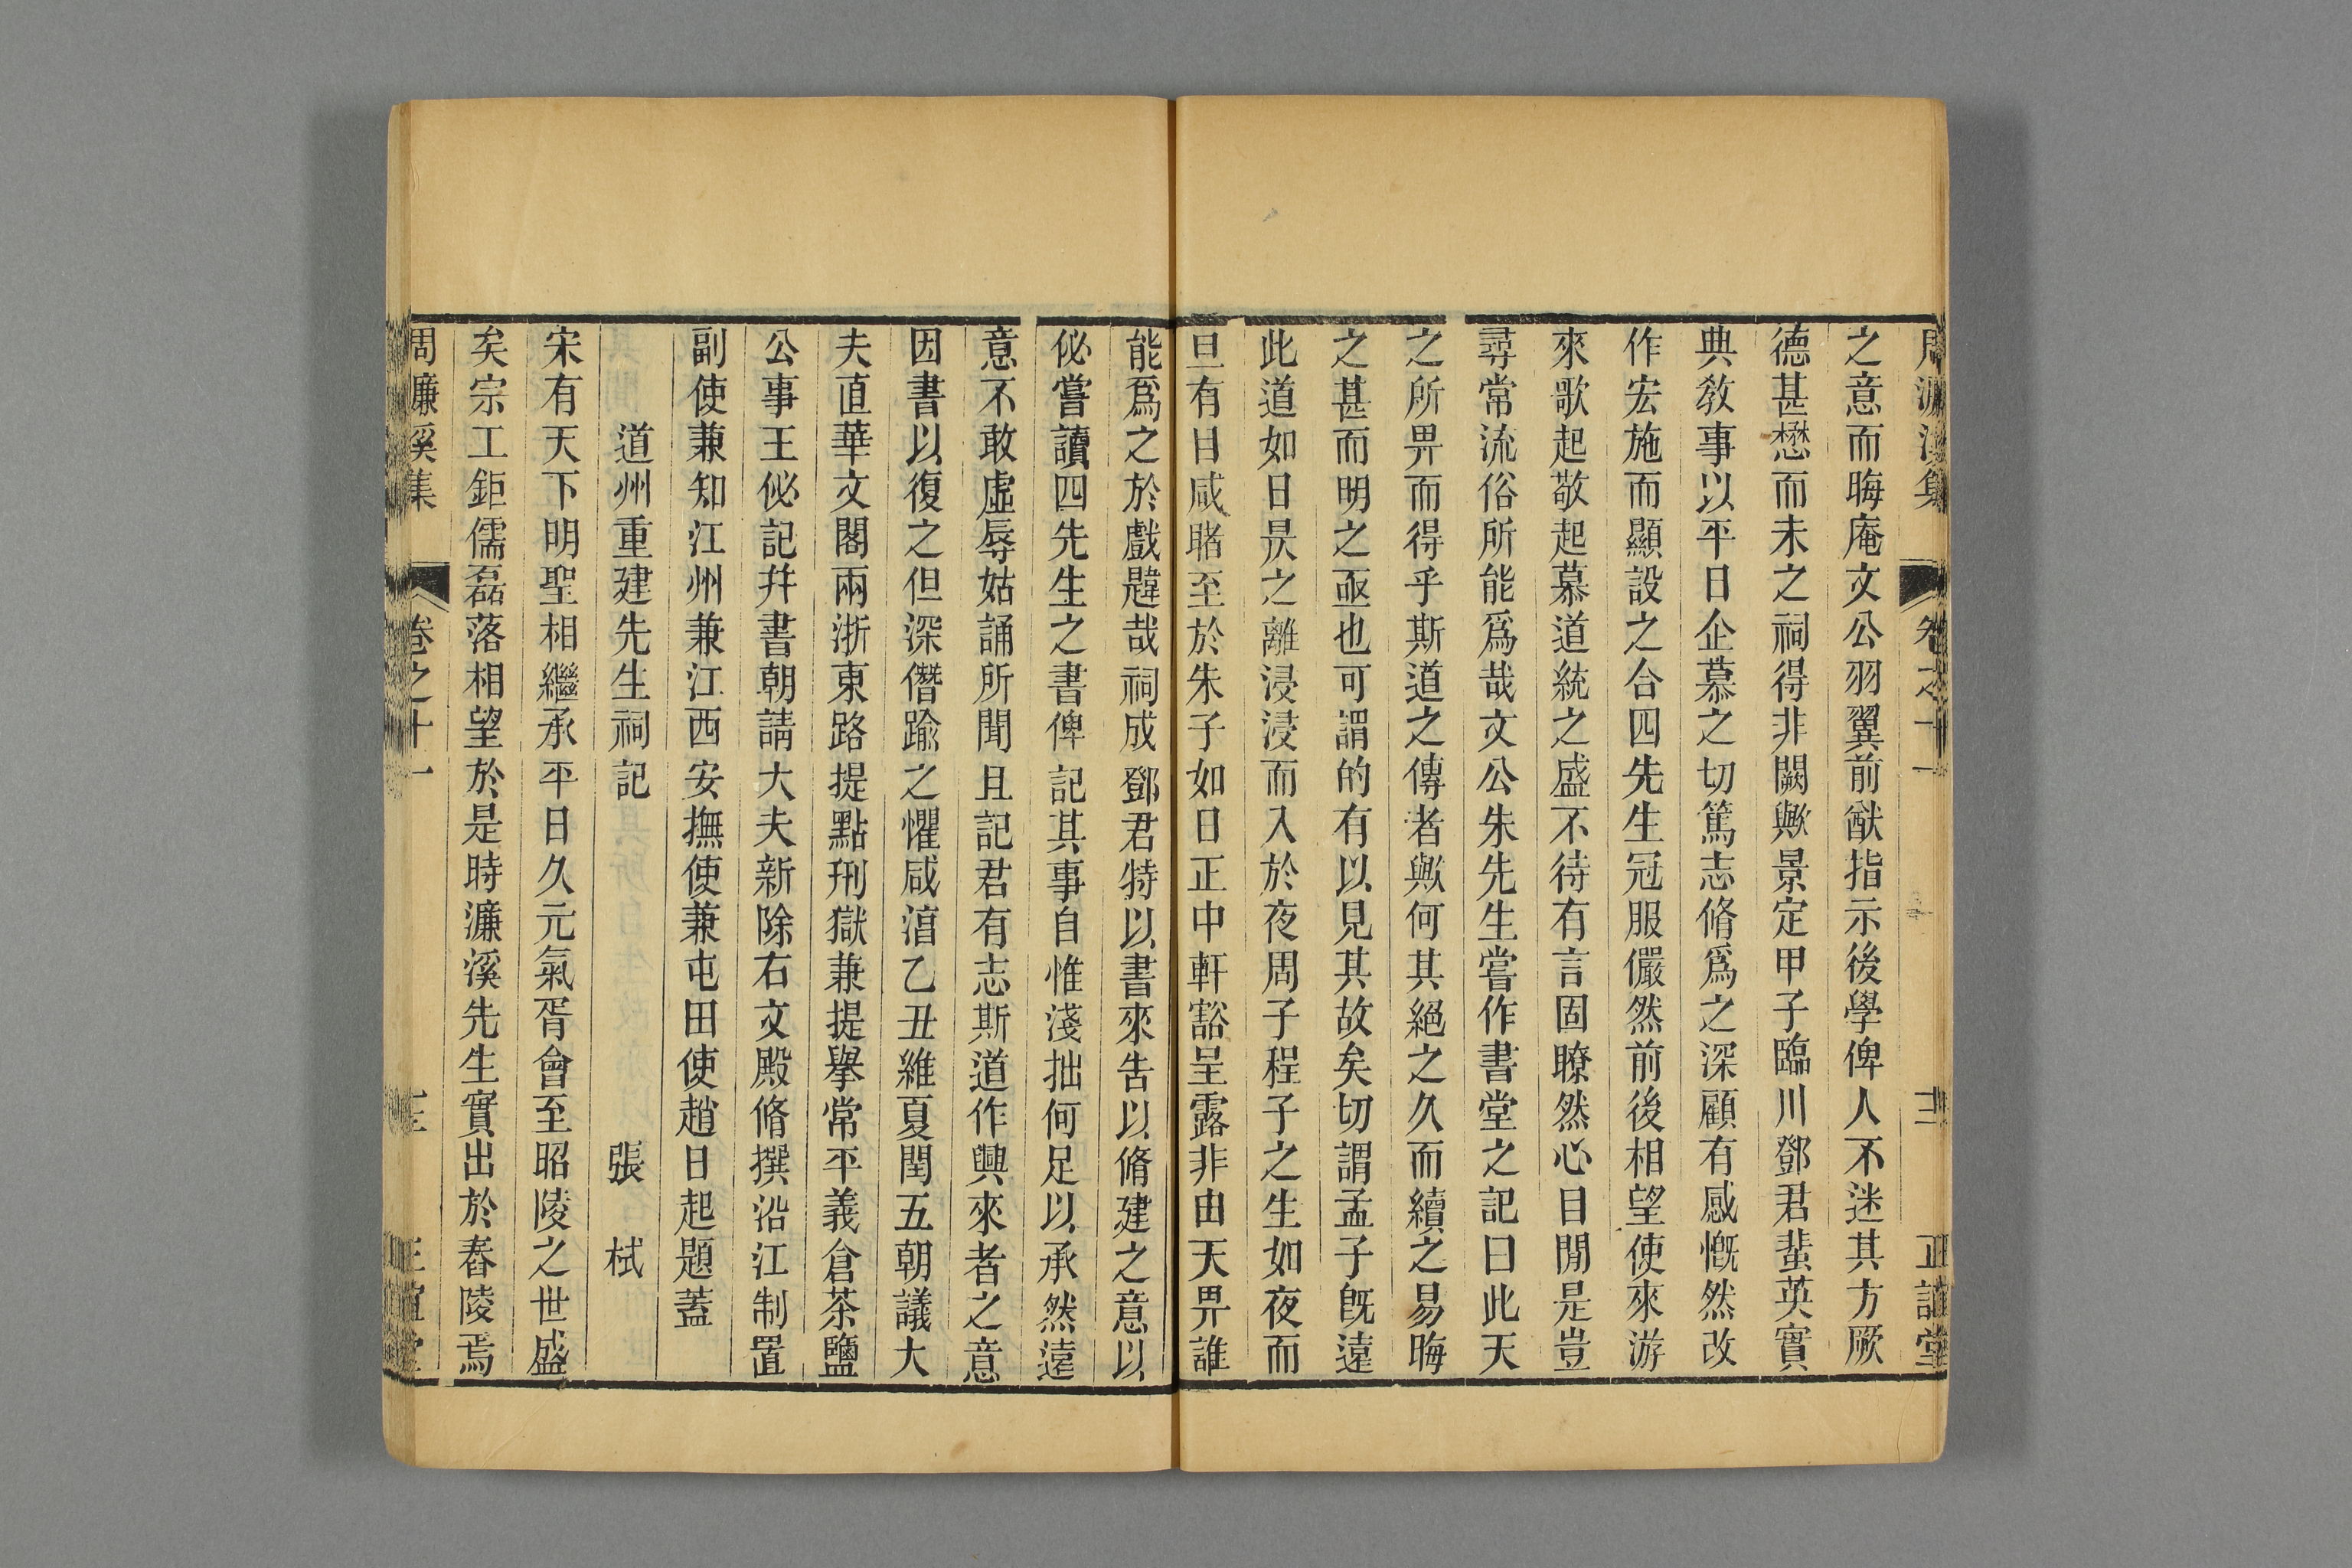 周濂溪集 卷之十一 十二 正誼堂
之意而晦庵文公羽翼前猷指示後學俾人不迷其方厥
德甚懋而未之祠得非闕歟景定甲子臨川鄧君蜚英實
典敎事以平日企慕之切篤志脩爲之深顧有感慨然改
作宏施而顯設之合四先生冠服儼然前後相望使來游
來歌起敬起慕道統之盛不待有言固瞭然心目閒是豈
尋常流俗所能爲哉文公朱先生嘗作書堂之記曰此天
之所畀而得乎斯道之傳者歟何其絕之久而續之易晦
之甚而明之亟也可謂的有以見其故矣切謂孟子旣遠
此道如日昃之離浸浸而入於夜周子程子之生如夜而
旦有目咸睹至於朱子如日正中軒豁呈露非由天畀誰
能爲之於戲韙哉祠成鄧君特以書來告以脩建之意以
佖嘗讀四先生之書俾記其事自惟淺拙何足以承然遠
意不敢虛辱姑誦所聞且記君有志斯道作興來者之意
因書以復之但深僭踰之懼咸淳乙丑維夏閏五朝議大
夫直華文閣兩浙東路提點刑獄兼提擧常平義倉茶鹽
公事王佖記幷書朝請大夫新除右文殿脩撰沿江制置
副使兼知江州兼江西安撫使兼屯田使趙日起題蓋
道州重建先生祠記 張栻
宋有天下明聖相繼承平日久元氣胥會至昭陵之世盛
矣宗工鉅儒磊落相望於是時濂溪先生實出於舂陵焉
周濂溪集 卷之十一 正誼堂